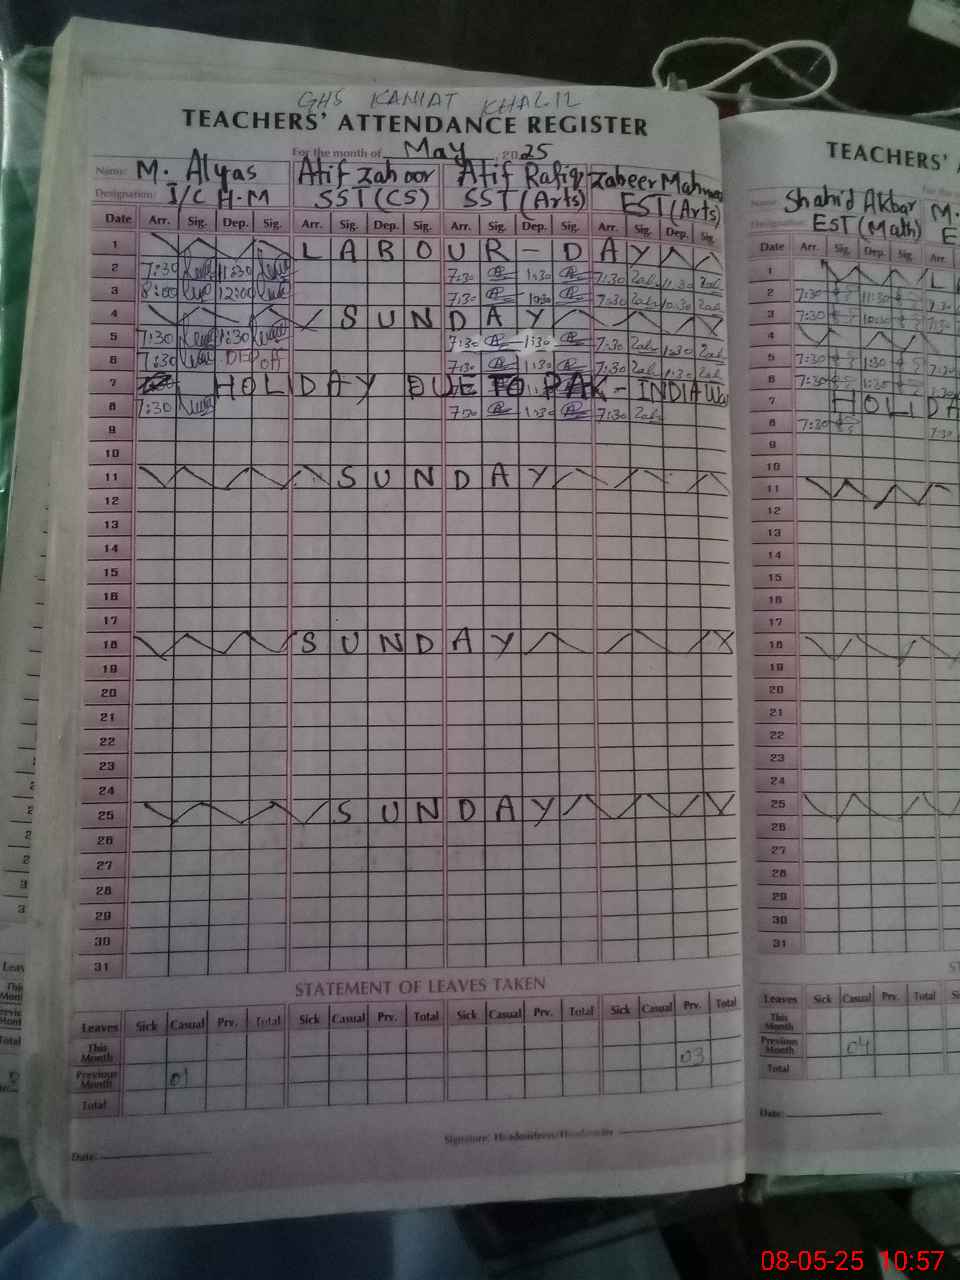 GHS KANIAT KHALIL
TEACHERS' ATTENDANCE REGISTER
For the month of May, 2025
Name: M. Alyas Atif Zahoor Atif Rafiq Zaheer Mahmood
Designation: I/C H.M SST (CS) SST (Arts) EST (Arts)
Date Arr. Sig. Dep. Sig. Arr. Sig. Dep. Sig. Arr. Sig. Dep. Sig. Arr. Sig. Dep. Sig.
1 LABOUR - DAY
2 7:30 11:30 7:30 1:30 7:30 Zah 11:30 Zah
3 8:00 12:00 7:30 10:30 7:30 Zah 10:30 Zah
4 SUNDAY
5 7:30 1:30 7:30 1:30 7:30 Zah 1:30 Zah
6 7:30 7:30 1:30 7:30 Zah 1:30 Zah
7 HOLIDAY DUE TO PAK - INDIA War
8 7:30 7:30 1:30 7:30 Zah
9
10
11 SUNDAY
12
13
14
15
16
17
18 SUNDAY
19
20
21
22
23
24
25 SUNDAY
26
27
28
29
30
31
STATEMENT OF LEAVES TAKEN
Leaves Sick Casual Prv. Total Sick Casual Prv. Total Sick Casual Prv. Total Sick Casual Prv. Total
This Month 03
Previous Month 01
Total
Signature: Headmistress/Headmaster
Date:
TEACHERS'
Name: Shahid Akbar M.
EST (Math) E
Date Arr. Sig. Dep. Sig. Arr.
1 L
2 7:30 11:30 7:30
3 7:30 10:30 7:30
4
5 7:30 1:30 7:30
6 7:30 1:30
7 HOLIDA
8 7:30 7:30
9
10
11
12
13
14
15
16
17
18
19
20
21
22
23
24
25
26
27
28
29
30
31
Leaves Sick Casual Prv. Total
This Month
Previous Month 04
Total
Date:
08-05-25 10:57